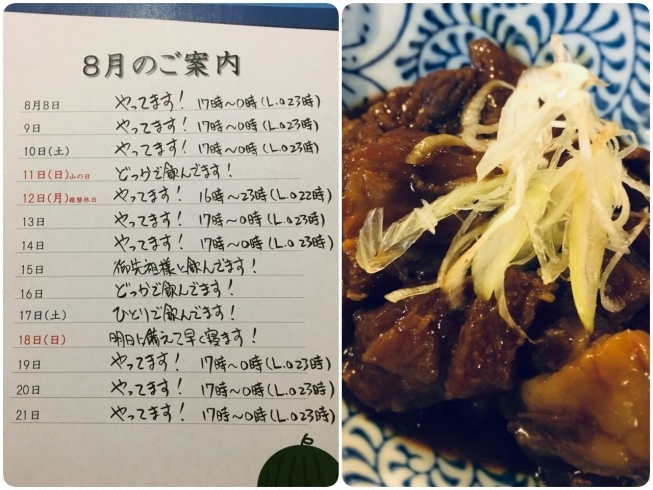 8月のご案内
8月8日 やってます！ 17時〜0時(L.o23時)
9日 やってます！ 17時〜0時(L.o23時)
10日(土) やってます！ 17時〜0時(L.o23時)
11日(日)山の日 どっかで飲んでます！
12日(月)振替休日 やってます！ 16時〜23時(L.o22時)
13日 やってます！ 17時〜0時(L.o23時)
14日 やってます！ 17時〜0時(L.o23時)
15日 御先祖様と飲んでます！
16日 どっかで飲んでます！
17日(土) ひとりで飲んでます！
18日(日) 明日に備えて早く寝ます！
19日 やってます！ 17時〜0時(L.o23時)
20日 やってます！ 17時〜0時(L.o23時)
21日 やってます！ 17時〜0時(L.o23時)